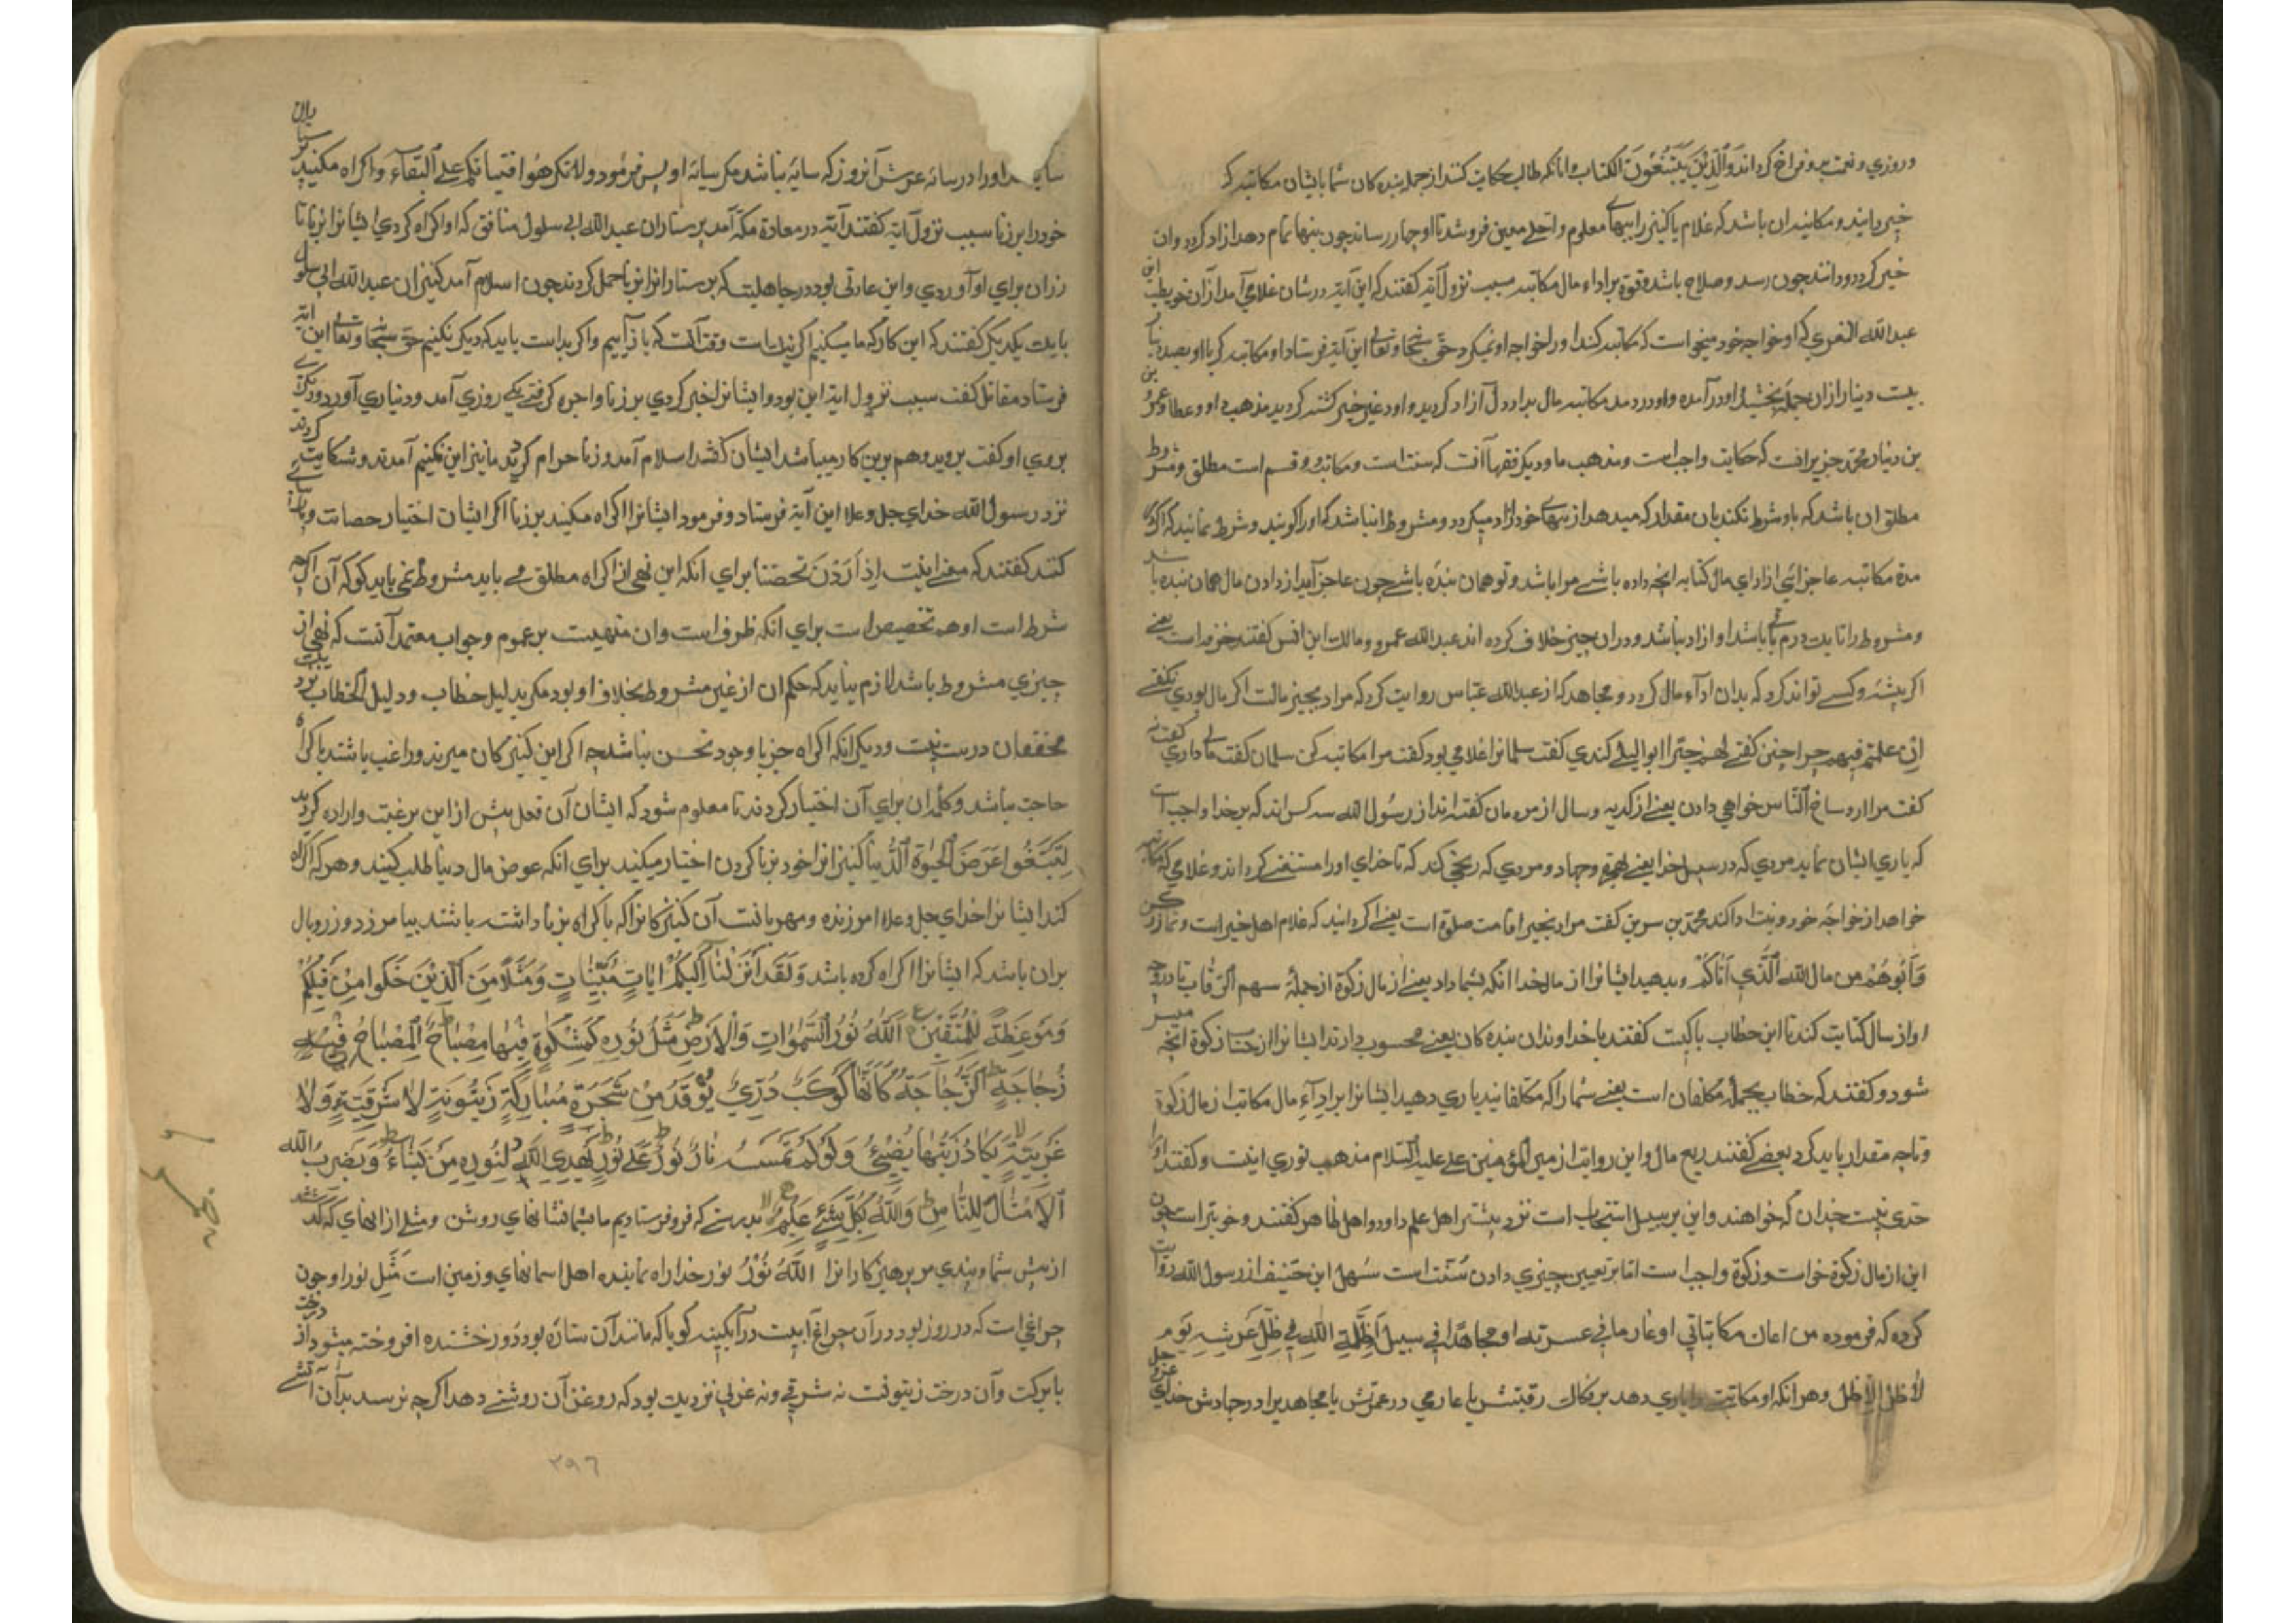 و روزي و نعمت برو فراخ كرداند وَٱلَّذِيْنَ يَبْتَغُونَ الكتاب و انانكه طالب كتابت كنند از جمله بنده كان شما با ايشان مكاتبه كـ
خير دانيد و مكاتبه ان باشد كه غلام يا كنيز را ببهاي معلوم و اجلي معين فروشد تا او بها رساند چون بها تمام دهد ازاد كردد و ان
خير كردد و دانند چون رسد و صلاح باشد و قوة بر اداء مال مكاتبه سبب نزول آية كفتند كه اين آية در شان غلامي آمد از آن حويطب ابن
عبد الله كه او خواجه خود ميخواست كه مكاتبه كند او را خواجه او نميكرد حق سبحانه و تعالى اين آية فرستاد او مكاتبه كرد با او بصد دينار
بيست دينار از ان جمله بخشيد او در آمده و او در مدة مكاتبه مال بداد و آزاد كرديد و او در غزو خيبر كشته كرديد مذهب او و عطا و عمرو بن
بن دينار كتابت واجب است و مذهب ما و ديكر فقها آنست كه سنت است و مكاتبه دو قسم است مطلق و مشروط
مطلق ان باشد كه با او شرط نكند بان مقدار كه ميدهد از بهاي خود آزاد ميكردد و مشروط ان باشد كه او را كويند و شرط نمايند كه اكر در
مدة مكاتبه عاجز ائي از اداي مال كتابه انچه داده باشي مرا باشد و تو همان بنده باشي چون عاجز آيد از دادن مال همان بنده باشد
و مشروط را تا يك درم باقي باشد او ازاد نباشد و در ان چيز خلاف كرده اند عبد الله عمرو و مالك ابن انس كفتند خير است يعني
اكر پيشه و كسبي تواند كرد كه بدان اداء مال كردد و مجاهد كه از عبد الله عباس روايت كرد كه مراد بخير مالست اكر مال بودي نكفتي
اِن علمتم فيهم چرا چنين كفتي لهم خيرا ابو ليلي كندي كفت سلمانرا غلامي بود كفت مرا مكاتبه كن سلمان كفت مالي داري كفت نه
كفت مرا اوساخ الناس خواهي دادن يعني از كديه و سوال از مردمان كفته اند از رسول الله سه كس اند كه بر خدا واجب است
كه ياري ايشان نمايد مردي كه در سبيل خدا يعني بغزو و جهاد و مردي كه نكاح كند كه تا خداي او را مستغني كرداند و غلامي كه مكاتبه
خواهد از خواجه خود و نيت ادا كند محمد بن سرين كفت مراد بخير اقامت صلوة است يعني اكر دانيد كه غلام اهل خير است و نماز كن
وَآتُوهُمْ من مال الله الَّذي اَتاكُمْ و بدهيد ايشانرا از مال خدا انكه بشما داد يعني از مال زكوة از جملهٔ سهم الرّقاب تا درو
او از مال كتابت كند تا اين خطاب با كيست كفتند با خداوندان بنده كان يعني محسوب دارند ايشانرا از حساب زكوة انچه ميسر
شود و كفتند كه خطاب بجملهٔ مكلفان است يعني شما را كه مكلفانيد ياري دهيد ايشانرا بر اداء مال مكاتب از مال زكوة
و تا چه مقدار بايد كرد بعضي كفتند ربع مال و اين روايت از امير المؤمنين علي عليه السلام مذهب ثوري اينست و كفتند او را
حدي نيست چندان كه خواهند و اين بر سبيل استحباب است نزد بيشتر اهل علم داود و اهل ظاهر كفتند وجوبست چون
اين از مال زكوة خواست و زكوة واجب است اما بر تعيين چيزي دادن سُنّت است سُهل ابن حنيف از رسول الله روايت
كرده كه فرموده من اعان مكاتباً او غارما في عسرته او مجاهداً في سبيل اَظَلّه الله في ظل عرشه يوم
لا ظل الا ظله و هر انكه او مكاتبت را ياري دهد بر فكاك رقبتش يا غارمي در عسرتش يا مجاهد را در جهادش خداي عزّ و جل
سايه او را در سايه عرش آنروز كه سايه نباشد مكر سايه او پس فرمود ولا تكرهوا فتياتكم على البغاء و اكراه مكنيد پرستاران
خود را بر زنا سبب نزول آية كفتند آية در معاذة و مسيكه آمد پرستاران عبد الله ابي سلول منافق كه او اكراه كردي ايشانرا بر زنا تا
زر ان براي او آوردي و اين عادتي بود در جاهليت كه پرستارانرا بر زنا حمل كردند چون اسلام آمد كنيزان عبد الله ابي سلول
با يكديكر كفتند كه اين كار كه ما ميكنيم اكر نيك است وقت آنست كه باز آييم و اكر بد است بايد كه ديكر نكنيم حق سبحانه و تعالى اين آية
فرستاد مقاتل كفت سبب نزول اية اين بود و ايشانرا جبر كردي بر زنا و اجره كرفتي يكي روزي آمد و ديناري آورد و ديكري
بردي او كفت برويد و هم برين كار ميباشد ايشان كفتند اسلام آمد و زنا حرام كرديد ما نيز اين نكنيم آمدند و شكايت كردند
نزد رسول الله خداي جل و علا اين آية فرستاد و فرمود ايشانرا اكراه مكنيد بر زنا اكر ايشان اختيار حصانت و پارسائي
كنند كفتند كه معني اينست اِذ اَرَدْنَ تحصنا براي انكه اين نهي از اكراه مطلق مي بايد مشروط نمي بايد كو كه آن اكر چه
شرط است او هم تخصيص است براي انكه ظرف است وان منهيست بر عموم و جواب معتمد آنست كه نهي از
چيزي مشروط باشد لازم نيايد كه حكم ان از غير مشروط بخلاف او بود مكر بدليل خطاب و دليل الخطاب نزد
محققان درست نيست و ديكر انكه اكراه جز با وجود تحصن نباشد چه اكر اين كنيزكان مريد و راغب باشند باكراه
حاجت نباشد و كلمه ان براي آن اختيار كردند تا معلوم شود كه ايشان آن فعل پيش از اين برغبت و اراده كرديد
لِتَبْتَغُوا عَرَضَ الْحَيٰوةِ ٱلدُّنيا كنيزانرا خود بزنا كردن اختيار ميكنيد براي انكه عوض مال دنيا طلب كنيد و هر كه اكراه
كند ايشانرا خداي جل و علا امرزنده و مهربانست آن كنيزكانرا كه باكراه بزنا داشته باشند بيامرزد و زر و بال
بران باشد كه ايشانرا اكراه كرده باشد وَلَقَد اَنْزَلْنَآ اِلَيكُمْ ايَاتٍ مُبَيّنَاتٍ وَمَثَلاً مِنَ ٱلَّذِيْنَ خَلَوا مِنْ قَبْلِكُمْ
وَمَوْعِظَةً لِلْمُتَّقِيْنَ اَللهُ نُورُ السَّمٰوَاتِ وَالْاَرْضِ مَثَلُ نُورِهِ كَمِشْكٰوةٍ فِيْهَا مِصْبَاحٌ اَلْمِصْبَاحُ فِيْ
زُجَاجَةٍ الزُّجَاجَةُ كَاَنَّهَا كَوْكَبٌ دُرِّيٌّ يُوْقَدُ مِنْ شَجَرَةٍ مُبَارَكَةٍ زَيْتُونَةٍ لَا شَرْقِيَّةٍ وَلَا
غَرْبِيَّةٍ يَكَادُ زَيْتُهَا يُضِيْٓءُ وَلَوْ لَمْ تَمْسَسْهُ نَارٌ نُوْرٌ عَلٰى نُوْرٍ يَهْدِي اللهُ لِنُورِهِ مَنْ يَشَاءُ وَيَضْرِبُ الله
ٱلْاَمْثَالَ لِلنَّاسِ وَاللهُ بِكُلِّ شَيْءٍ عَلِيْمٌ بدرستي كه فرو فرستاديم ما بشما نشانهاي روشن و مثلي از انهاي كه كذشتند
از پيش شما و پندي مر پرهيزكارانرا اَللهُ نُوْرُ نور خدا راه نماينده اهل اسمانهاي و زمين است مَثَل نور او چون
چراغي است كه در روزن بود در آن چراغ آبيست در آبكينه كويا كه مانند آن ستاره بود درخشنده افروخته ميشود از درخت
با بركت و آن درخت زيتونست نه شرقي و نه غربي نزديك بود كه روغن آن روشني دهد اكر چه نرسد بدان آتشي
۲۹۶